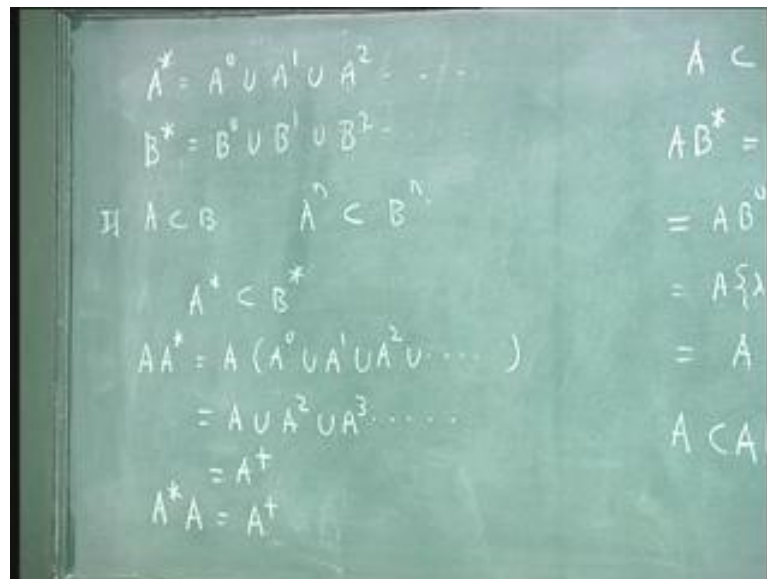 A* = A⁰ ∪ A¹ ∪ A² - . . .
B* = B⁰ ∪ B¹ ∪ B² - . .
If A ⊂ B Aⁿ ⊂ Bⁿ.
A* ⊂ B*
AA* = A (A⁰ ∪ A¹ ∪ A² ∪ . . . . )
= A ∪ A² ∪ A³ . . . . . .
= A⁺
A* A = A⁺
A ⊂
AB* =
= AB⁰
= A{λ
= A
A ⊂ A